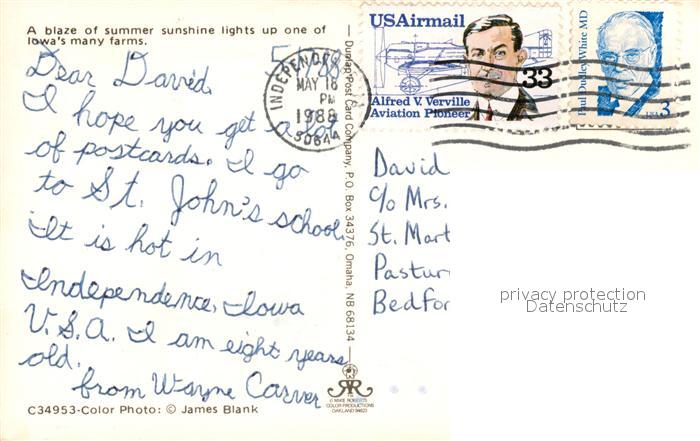 A blaze of summer sunshine lights up one of
Iowa's many farms.
Dear David,
I hope you get a lot
of postcards. I go
to St. John's school.
It is hot in
Independence, Iowa
U.S.A. I am eight years
old.
from Wayne Carver
C34953-Color Photo: © James Blank
Dunlap Post Card Company, P.O. Box 34376, Omaha, NB 68134
© MIKE ROBERTS
COLOR PRODUCTIONS
OAKLAND 94623
INDEPENDENCE
MAY 18
PM
1988
USAirmail
33
Alfred V. Verville
Aviation Pioneer
Paul Dudley White MD
USA 3
David
c/o Mrs.
St. Mart
Pastur
Bedfor
privacy protection
Datenschutz